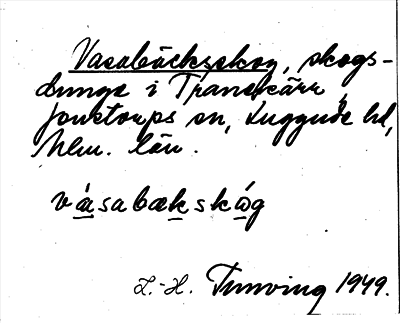 Vasabäcksskog, skogs-
dunge i Tranekärr,
Jonstorps sn, Luggude hd,
Mlm. län.
vásabækskóg
L.-H. Tunving 1949.